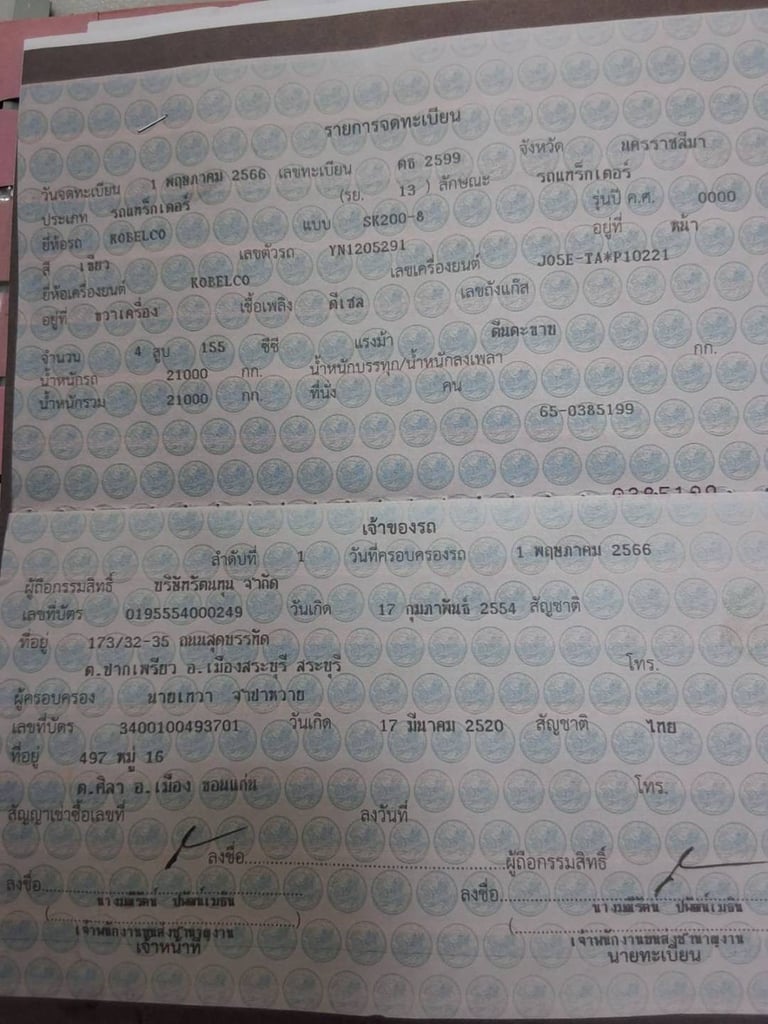 รายการจดทะเบียน
วันจดทะเบียน 1 พฤษภาคม 2566 เลขทะเบียน ตธ 2599 จังหวัด นครราชสีมา
ประเภท รถแทร็กเตอร์ (รย. 13 ) ลักษณะ รถแทร็กเตอร์
ยี่ห้อรถ KOBELCO แบบ SK200-8 รุ่นปี ค.ศ. 0000
สี เขียว เลขตัวรถ YN1205291 อยู่ที่ หน้า
ยี่ห้อเครื่องยนต์ KOBELCO เลขเครื่องยนต์ J05E-TA*P10221
อยู่ที่ ขวาเครื่อง เชื้อเพลิง ดีเซล เลขถังแก๊ส
จำนวน 4 สูบ 155 ซีซี แรงม้า ตีนตะขาบ
น้ำหนักรถ 21000 กก. น้ำหนักบรรทุก/น้ำหนักลงเพลา กก.
น้ำหนักรวม 21000 กก. ที่นั่ง คน
65-0385199
0385199
เจ้าของรถ
ลำดับที่ 1 วันที่ครอบครองรถ 1 พฤษภาคม 2566
ผู้ถือกรรมสิทธิ์ บริษัทรัตนทุน จำกัด
เลขที่บัตร 0195554000249 วันเกิด 17 กุมภาพันธ์ 2554 สัญชาติ
ที่อยู่ 173/32-35 ถนนสุดบรรทัด
ต.ปากเพรียว อ.เมืองสระบุรี สระบุรี โทร.
ผู้ครอบครอง นายเทวา จำปาหวาย
เลขที่บัตร 3400100493701 วันเกิด 17 มีนาคม 2520 สัญชาติ ไทย
ที่อยู่ 497 หมู่ 16
ต.ศิลา อ.เมือง ขอนแก่น โทร.
สัญญาเช่าซื้อเลขที่ ลงวันที่
ลงชื่อ ผู้ถือกรรมสิทธิ์
ลงชื่อ ลงชื่อ
เจ้าพนักงานขนส่งชำนาญงาน เจ้าพนักงานขนส่งชำนาญงาน
เจ้าหน้าที่ นายทะเบียน